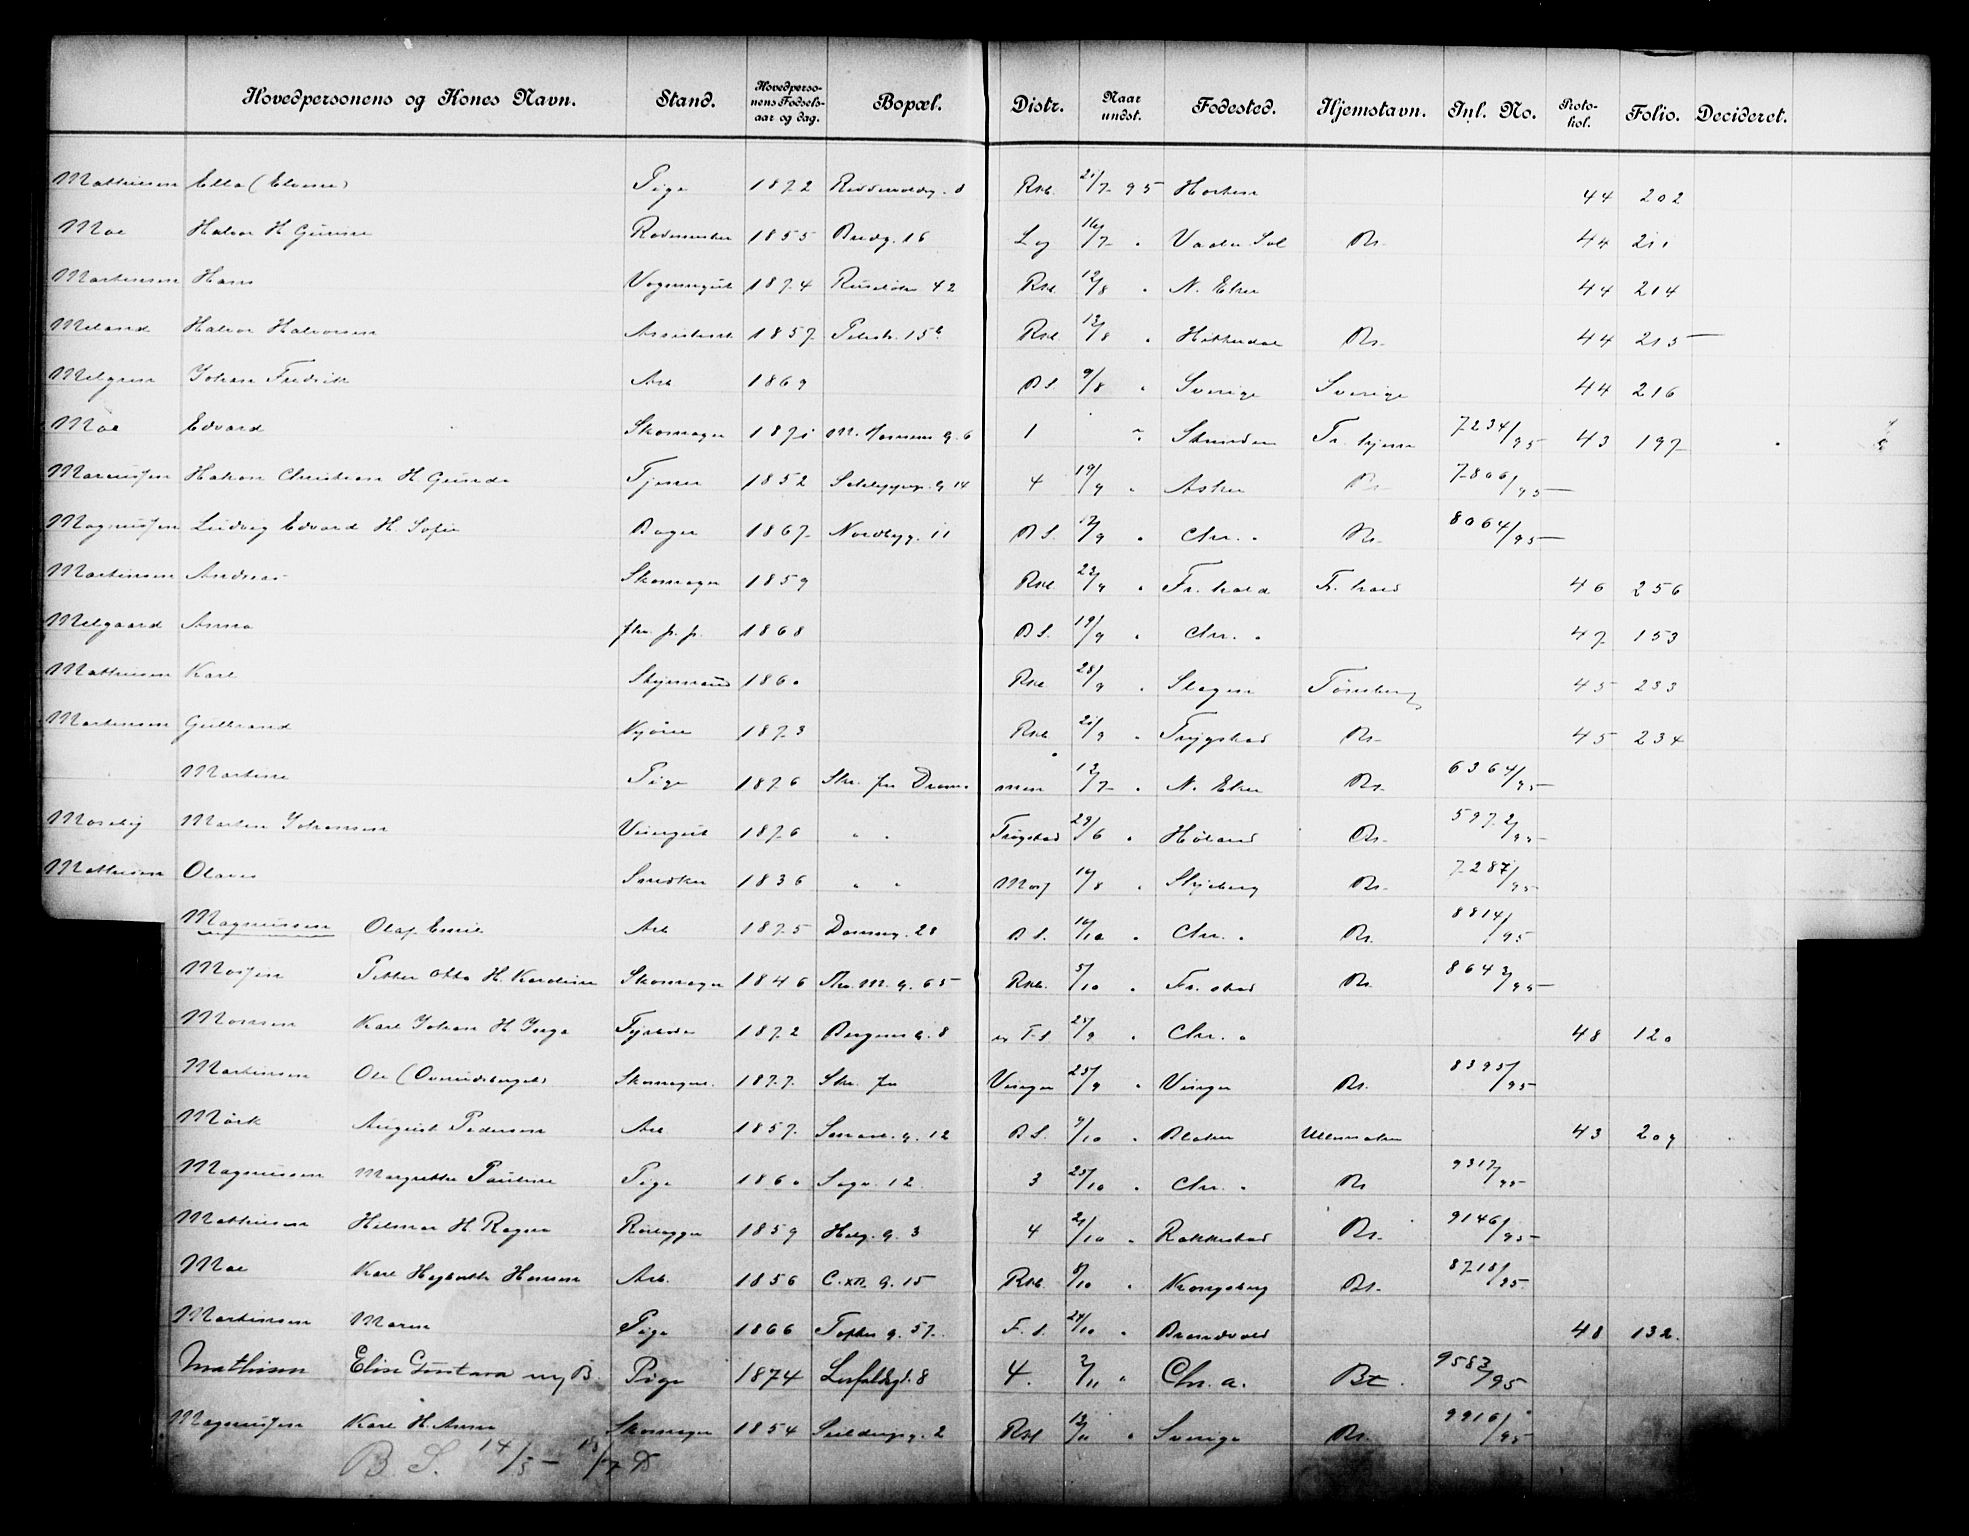 Hovedpersonens og Kones Navn. Stand. Hovedpersonens Fødselsaar og dag. Bopæl. Distr. Naar undst. Fødested. Hjemstavn. Inl. No. Protokol. Folio. Decideret.
Mathiesen Ella (Elvine) Pige 1872 Rkl. 21/7 95 Horten 44 202
Moe Halvor H. Gurine Rodemester 1855 Bredg. 16 Lq 16/7 Vaaler Sol Bt. 44 211
Martinsen Hans Vognmagers 1874 Ruseløk 42 Rkl. 12/8 N. Eker 44 214
Meland Halvor Halvorsen Assistent 1857 Pilestr. 15b Rkl. 12/8 Hitterdal Bt. 44 215
Melgren Johan Fredrik Arb 1869 B S. 9/8 Sverige Sverige 44 216
Moe Edvard Skomager 1871 M. Hansens g. 6 1 Tr. hjem 7234/95 43 197
Marcussen Hakon Christian H Gunda Tjener 1852 14 4 19/9 Asker Bt 7806/95
Magnussen Ludvig Edvard H. Sofie Bager 1867 Nordbyg. 11 B S. 12/9 Chr. Bt. 8064/95
Martinsen Andreas Skomager 1859 Rkl. 23/9 Fr. hald Fr. hald 46 256
Melgaard Anna fhv. p. p. 1868 B S. 19/9 Chr. 47 153
Mathiesen Karl Skyemand 1860 Rkl 28/9 Slagen Tønsberg 45 233
Martinsen Gulbrand Kjører 1873 Rkl. 21/9 Trygstad Bt. 45 234
Martine Pige 1876 Skr. fra Drammen 12/7 N. Eker Bt. 6364/95
Mosebÿ Martin Johansen Visergut 1876 " " Trøgstad 29/6 Høland Bt. 5972/95
Mathiesen Olaves Snedker 1836 " " Moss 14/8 Skjeberg Bt. 7287/95
Magnussen Olaf Emil Arb 1875 Dammeg. 28 B S. 14/10 Chr. Bt. 8814/95
Mossen Petter Otto H. Karoline Skomager 1846 Th. M. g. 65 Rkl. 5/10 Fr. stad Bt. 8643/95
Monsen Karl Johan H Inga 1872 Bergens g. 8 F. S 25/9 Chr. 48 120
Martinsen Ole Skomagers. 1877 Skr. fra Vinger 25/9 Vinger Bt. 8395/95
Mörk August Pedersen Arb. 1857 12 B S. 4/10 Blaker Ullensaker 43 209
Magnussen Margrethe Pauline Pige 1860 Sagv. 12. 3 25/10 Chr. Bt 9317/95
Mathiesen Hilmar H. Ragna Rørlegger 1859 Helg. g. 3 4 21/10 Rakkestad Bt. 9146/95
Moe Karl Hansen Arb. 1856 C. XII g. 15 Rkl. 8/10 Kongsberg Bt. 8718/95
Martinsen Maren Pige 1866 Toftes g. 57. F. S. 24/10 Brandvold 48 132.
Mathisen Elise Gustava Pige 1874 8 4. 2/11 " Chr. a. Bt. 9583/95
Magnussen Karl H. Anne Skomager 1854 Seildugsg. 2 Rkl 13/11 Sverige Bt. 9916/95
B. S. 14/5 – 13/7